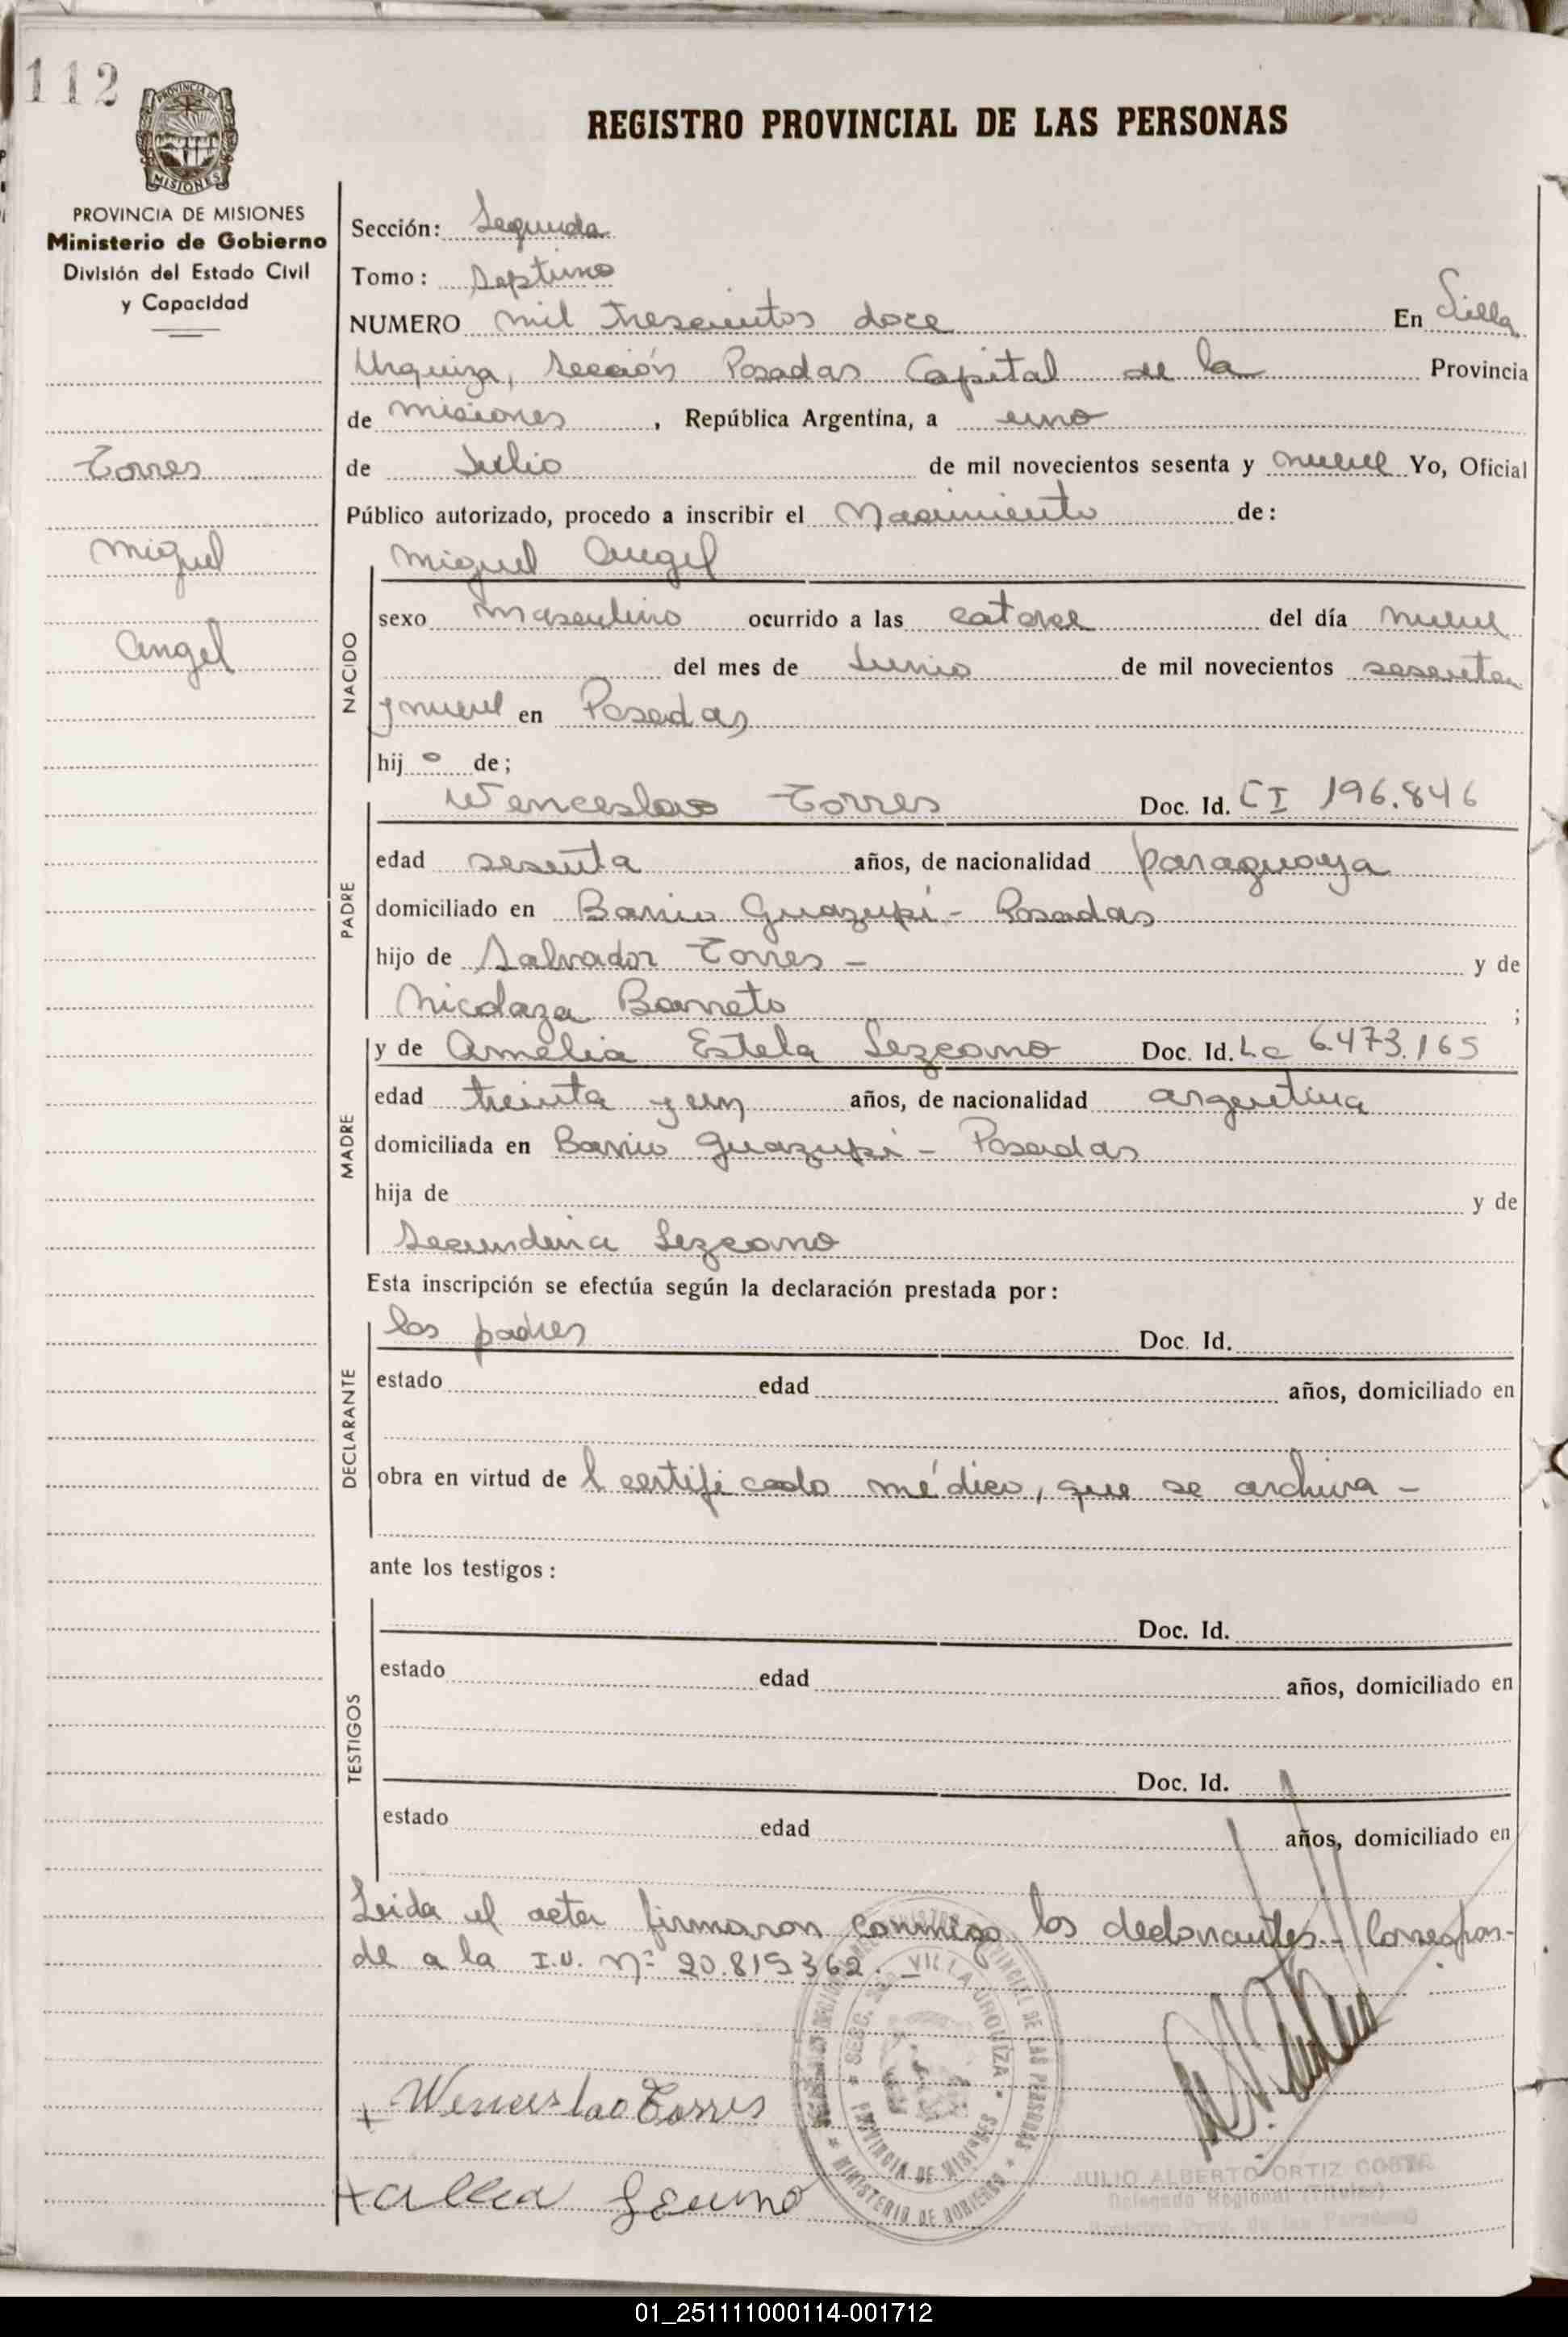 112
PROVINCIA DE
MISIONES
REGISTRO PROVINCIAL DE LAS PERSONAS
PROVINCIA DE MISIONES
Ministerio de Gobierno
División del Estado Civil
y Capacidad
Torres
Miguel
Angel
Sección: Segunda
Tomo: Septimo
NUMERO mil trescientos doce En Villa
Urquiza, Sección Posadas Capital de la Provincia
de misiones, República Argentina, a uno
de Julio de mil novecientos sesenta y nueve Yo, Oficial
Público autorizado, procedo a inscribir el Nacimiento de:
NACIDO
Miguel Angel
sexo masculino ocurrido a las catorce del día nueve
del mes de Junio de mil novecientos sesenta
y nueve en Posadas
hijo de;
PADRE
Wenceslao Torres Doc. Id. CI 196.846
edad sesenta años, de nacionalidad paraguaya
domiciliado en Barrio Guazupi - Posadas
hijo de Salvador Torres - y de
Nicolaza Barreto ;
MADRE
y de Amelia Estela Lezcano Doc. Id. Lc 6.473.165
edad treinta y un años, de nacionalidad argentina
domiciliada en Barrio Guazupi - Posadas
hija de y de
Secundina Lezcano
Esta inscripción se efectúa según la declaración prestada por:
DECLARANTE
los padres Doc. Id.
estado edad años, domiciliado en
obra en virtud de l certificado médico, que se archiva -
ante los testigos:
TESTIGOS
Doc. Id.
estado edad años, domiciliado en
Doc. Id.
estado edad años, domiciliado en
Leida el acta firmaron conmigo los declarantes.- Correspon-
de a la I.U. Nº 20.815362. -
SECC. VILLA URQUIZA
PROVINCIA DE MISIONES
PROVINCIAL DE LAS PERSONAS
MINISTERIO DE GOBIERNO
+ Wenceslao Torres
+
JULIO ALBERTO ORTIZ COSTA
Delegado Regional (Titular)
Registro Prov. de las Personas
01_251111000114-001712